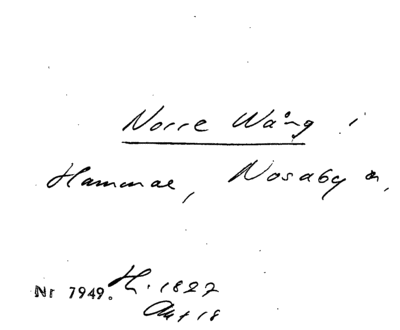 Norre Wång i
Hammar, Nosaby sn,
Nr 7949. H. 1827
Akt 18